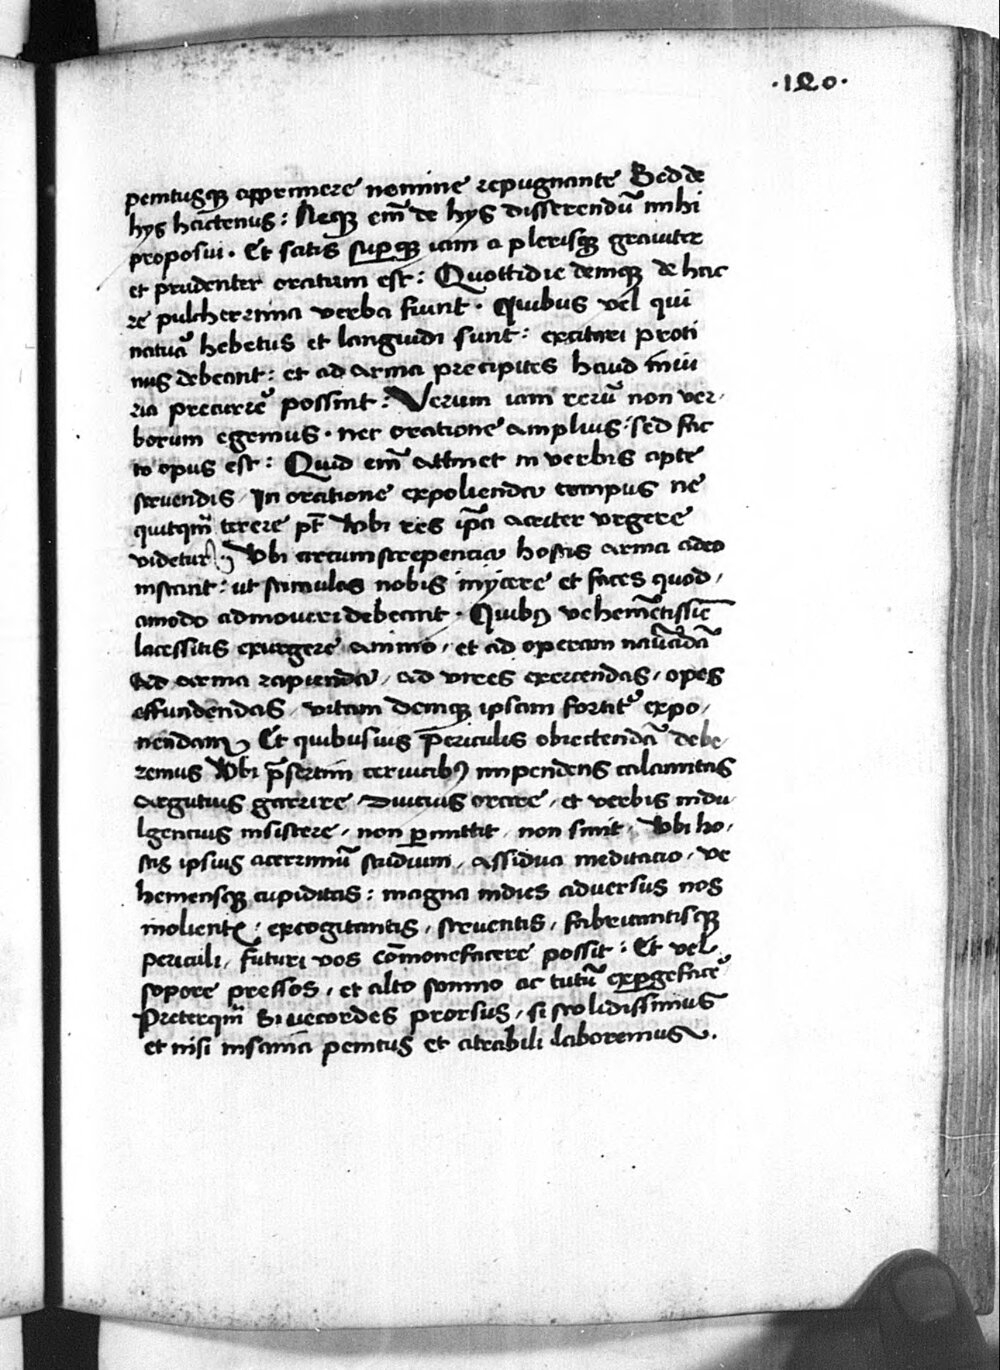 ·120·
penitusq; apprimere nomine repugnante Sed de
hys hactenus: Neq; em̅ de hys disserendu̅ mihi
proposui. Et satis superq; iam a plerisq; grauiter
et prudenter oratum est: Quottidie demq; de hac
re pulcherrima verba fiunt. Quibus vel qui
natura hebetus et languidi sunt: excitari proti
nus debeant: et ad arma precipites haud iniu
ria precurre possint: Verum iam reru̅ non ver-
borum egemus. nec oratione amplius sed fac
to opus est: Quid em̅ attinet in verbis apte
struendis, In oratione expolienda tempus ne
quitqm̅ terere pt̅ Vbi res ip̅a acriter vrgere
videtur; Vbi circumstrepentia hostis arma adeo
instant: ut stimulos nobis inycere et faces quod,
amodo admoueri debeant. Quib9 veheme̅tissi̅e
lacessitis exurgere animo, et ad operam naua̅da̅
Ad arma rapienda, ad vires exercendas, opes
effundendas, vitam demq; ipsam fortit' expo,
nendam, Et quibusuis periculis obiectenda̅ debe-
remus Vbi p̅sertim ceruicib9 impendens calamitas
argutius garrire, Diutius orare, et verbis indu
lgentius insistere, non p̅mittit, non sinit, Vbi ho,
stis ipsius acerrimu̅ studium, assidua meditatio, ve
hemensq; cupiditas: magna indies aduersus nos
molient̅, excogitantis, struentis, fabricantisq;
periculi, futuri vos co̅monefacere possit: Et vel
sopore pressos, et alto somno ac tutu̅ expgeface'
Preterqm̅ Si vecordes prorsus, si stolidissimus
et nisi insania penitus et atrabili laboremus.